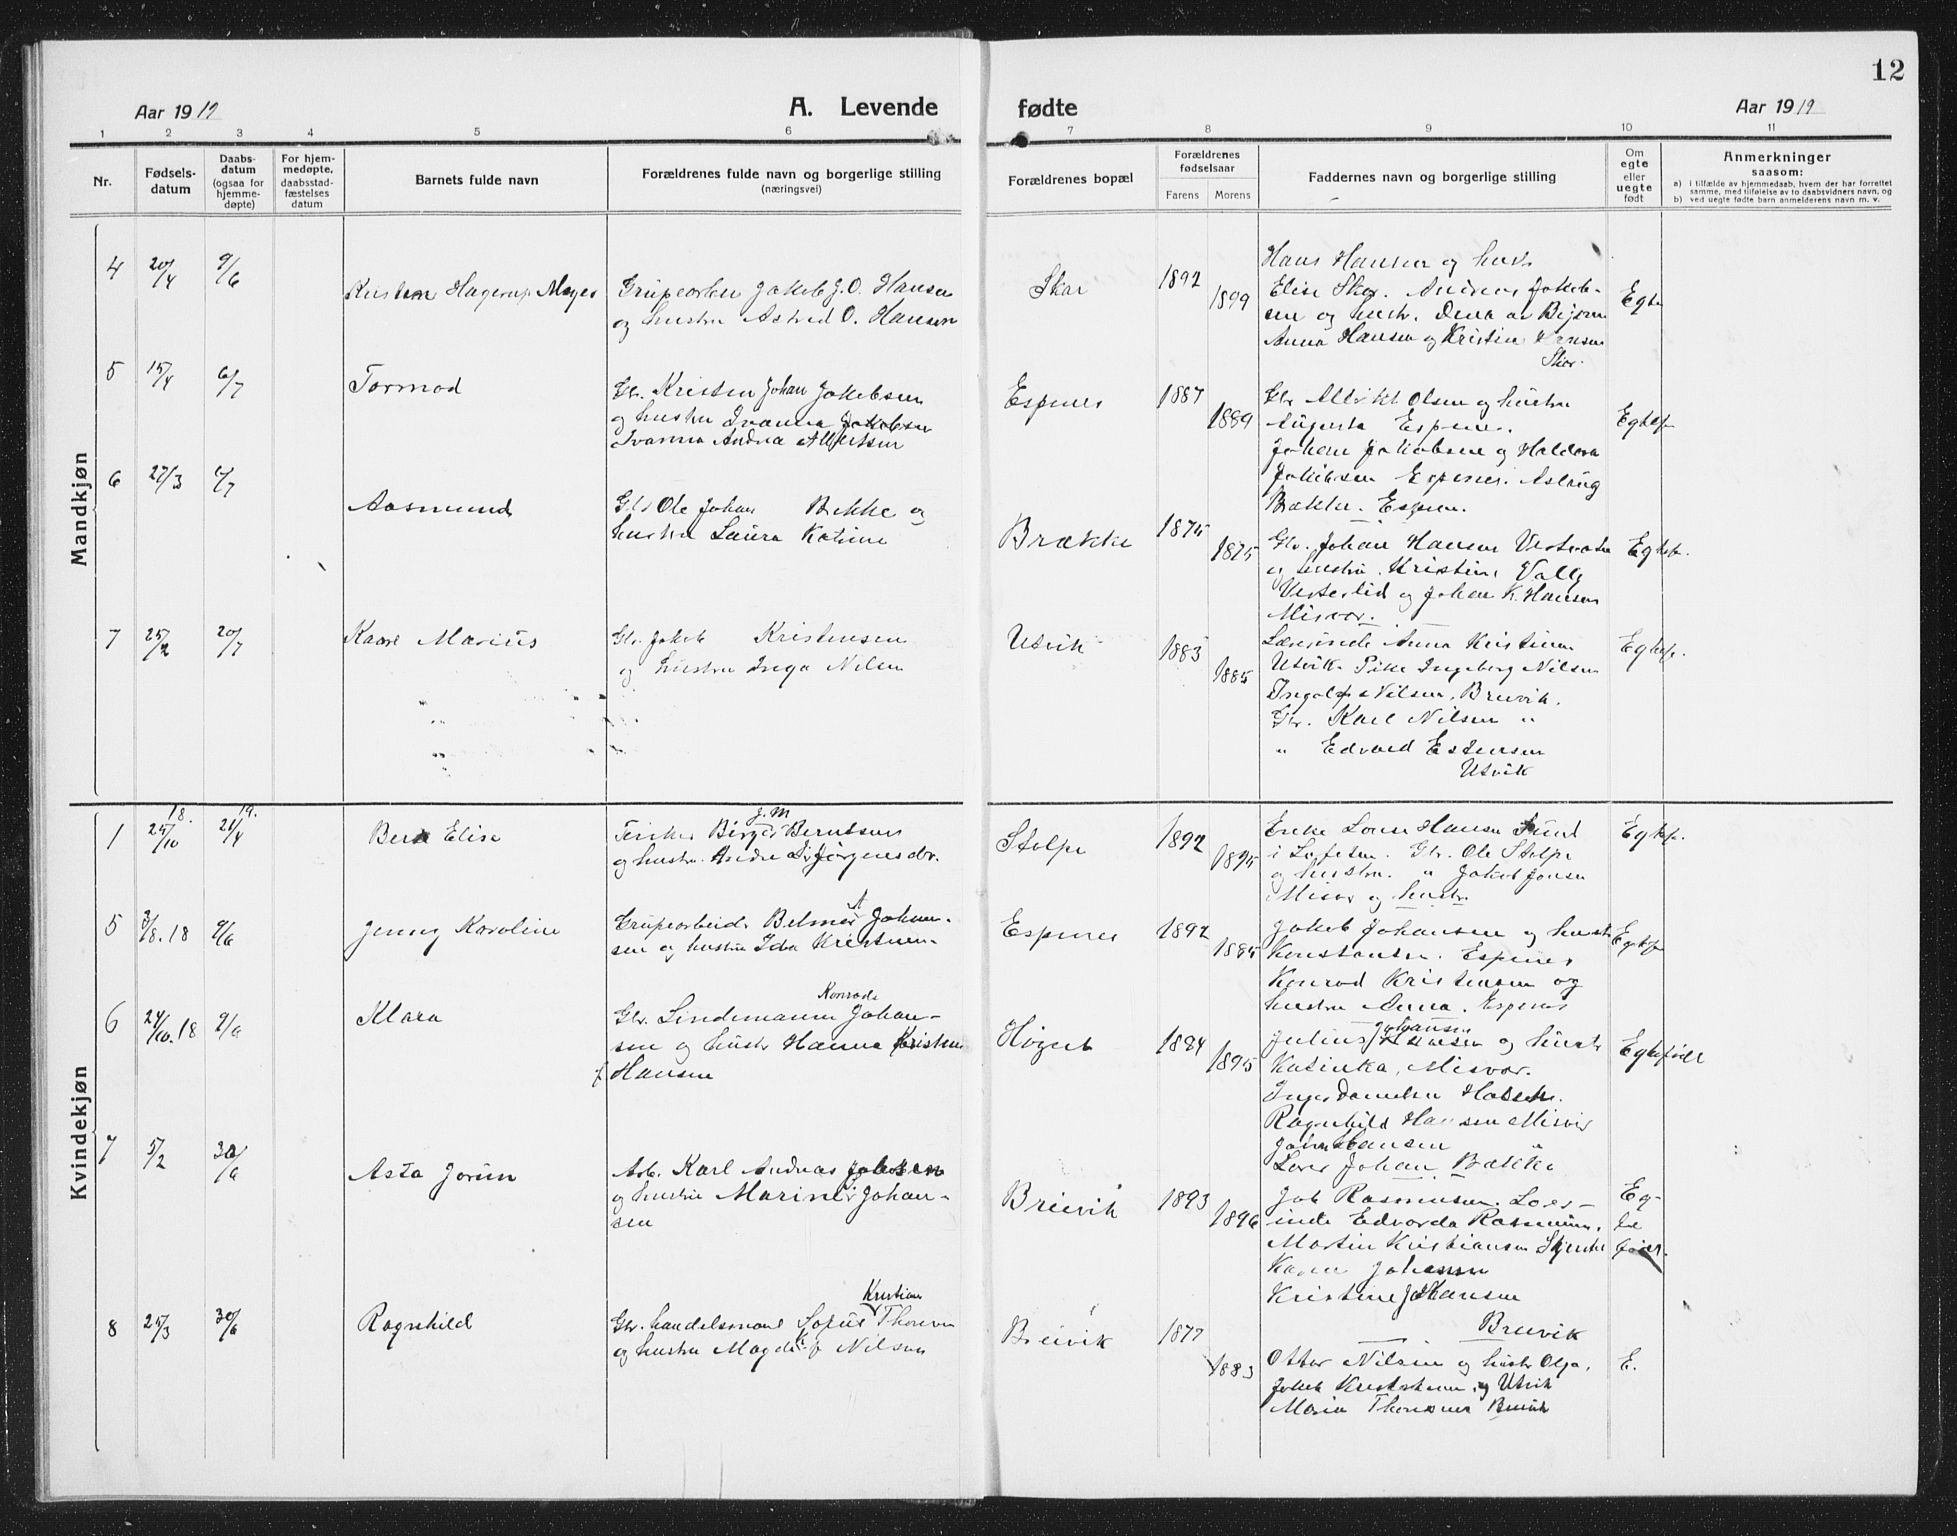 12
Aar 1919
A. Levende fødte
Aar 1919
1 2 3 4 5 6 7 8 9 10 11
Nr.
Fødsels-
datum
Daabs-
datum
(ogsaa for
hjemme-
døpte)
For hjem-
medøpte,
daabsstad-
fæstelses
datum
Barnets fulde navn
Forældrenes fulde navn og borgerlige stilling
(næringsvei)
Forældrenes bopæl
Forældrenes
fødselsaar
Farens Morens
Faddernes navn og borgerlige stilling
Om
egte
eller
uegte
født
Anmerkninger
saasom:
a) i tilfælde av hjemmedaab, hvem der har forrettet
samme, med tilføielse av to daabsvidners navn, og
b) ved uegte fødte barn anmelderens navn m. v.
Mandkjøn
4 20/4 9/6
Hagerup Meyer
Jakob J. O. Hansen
og hustru Astrid O. Hansen
Skar
1892
1899
Hans Hansen og hustr
Elise Skar. Andreas Jakob-
sen og hustr. Dena
Anna Hansen og Kristine Hansen
Skar.
Egte
5 15/4 6/7
Tormod
Gbr. Kristen Johan Jakobsen
og hustru Ivanna Jakobsen
Ivanna Andrea Albertsen
Espenes
1887
1889
Gbr Olsen og hustru
Augusta Espenes.
Johan Jakobsen og Haldora
Jakobsen Espenes. Aslaug
Bække. Espenes.
Egtef.
6 27/3 6/7
Aasmund
Gbr Ole Johan Bekke og
hustru Laura Katrine
Brække
1875
1875
Gbr. Johan Hansen
og hustru. Kristine Valle
Vesterlid og Johan K. Hansen
Misvær.
Egtef.
7 25/2 20/7
Kaare Marius
Gbr. Jakob Kristensen
og hustru Inga Nilsen
Utvik
1883
1885
Anna Kristensen
Utvik. Pike Ingeborg Nilsen
Ingolf Nilsen, Breivik.
Gbr. Karl Nilsen "
" Edvard Estensen
Utvik
Egtef.
Kvindekjøn
1 18. 25/10 19. 21/4
Elise
J. M
Birger Berntsen
og hustru. Jørgensdtr.
Stolpe
1892
1895
Enke Hansen Sund
i Lofoten. Gbr. Ole Stolpe
og hustru. " Jakob Jonsen
Misvær og hustr.
Egtef.
5 3/8. 18 9/6
Jenny Karoline
A
Grupearbeid. Johan-
sen og hustru Ida Kristensen
Espenes
1892
1885
Jakob Johansen og hustr
Konstanse. Espenes
Konrad Kristensen og
hustru Anna. Espenes
Egtef
6 24/10. 18 9/6
Klara
Konrade
Gbr. Lindemann Johan-
sen og hustr Hanna Kristine
f Hansen
1884
1895
Johansen
Julius Hansen og hustr
Katinka, Misvær.
Inger Danielsen
Ragnhild Hansen Misvær
Johan Hansen "
Lars Johan Bække
Egtefødt
7 5/2 30/6
Asta Jorun
Arb. Karl Andreas Jakobsen
og hustru Marine Johan-
sen
Breivik
1893
1896
Jab Rasmussen. Lær-
inde Edvarda Rasmussen.
Martin Kristiansen
Karen Johansen
Kristine Johansen
Breivik
Eg-
te
født.
8 25/3 30/6
Ragnhild
Kristian
Gbr. handelsmand Sofus
og hustru Magda K. f Nilsen
Breivik
1877
1883
Ottar Nilsen og hustr Olga.
Jakob Kristensen. og Utvik
Maria Breivik
E.